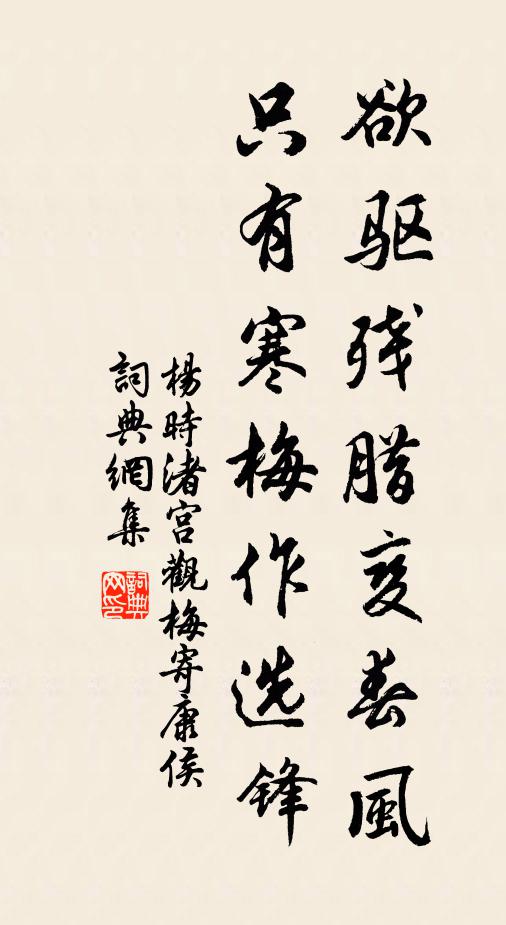 欲驱残腊变春風
只有寒梅作选锋
楊時渚宫觀梅寄康侯
詞典網集
詞典网印